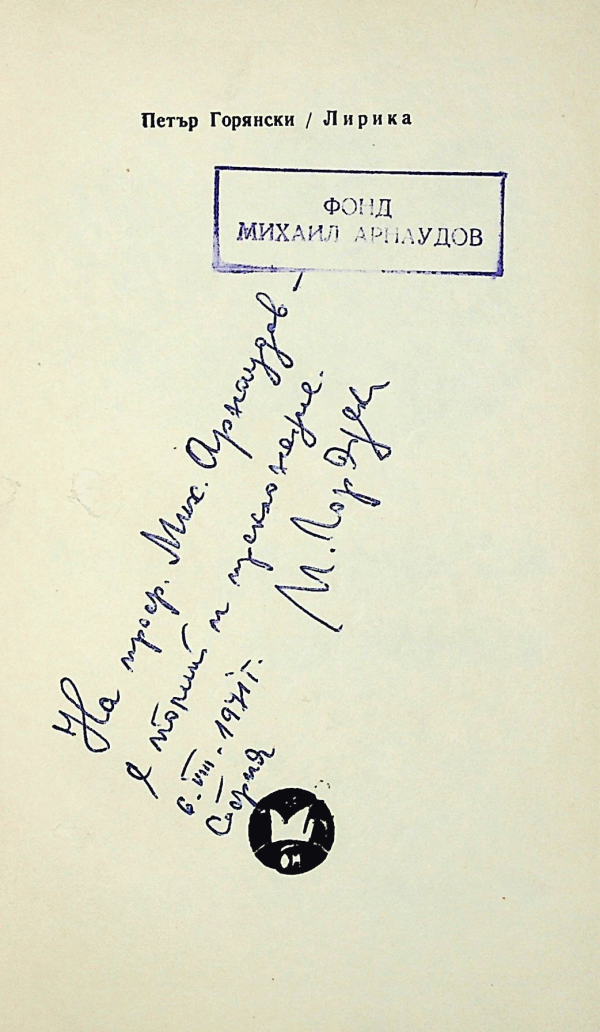 Петър Горянски / Лирика
ФОНД
МИХАИЛ АРНАУДОВ
На проф. Мих. Арнаудов –
с и преклонение.
6. VIII. 1971 г.
София